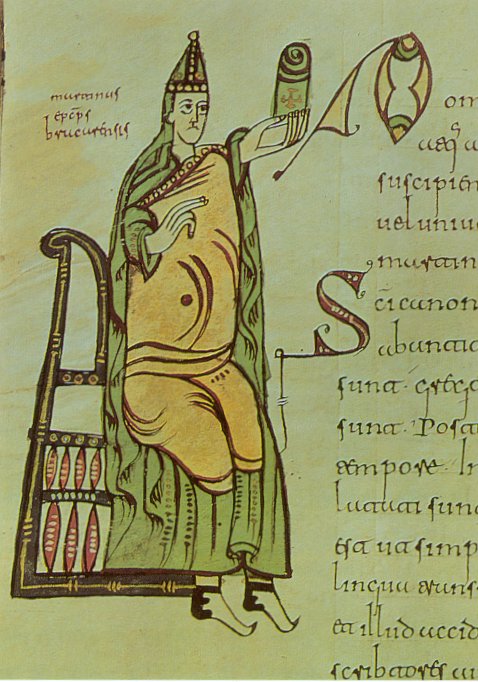 martinus
epcps
bracarensis
om
atq a
suscipien
uel uniue
martin
Sci canon
ab anti
sunt. grec
sunt. Post
tempore. In
sunt
est ut simp
lingua trans
et illud accid
scribtores au